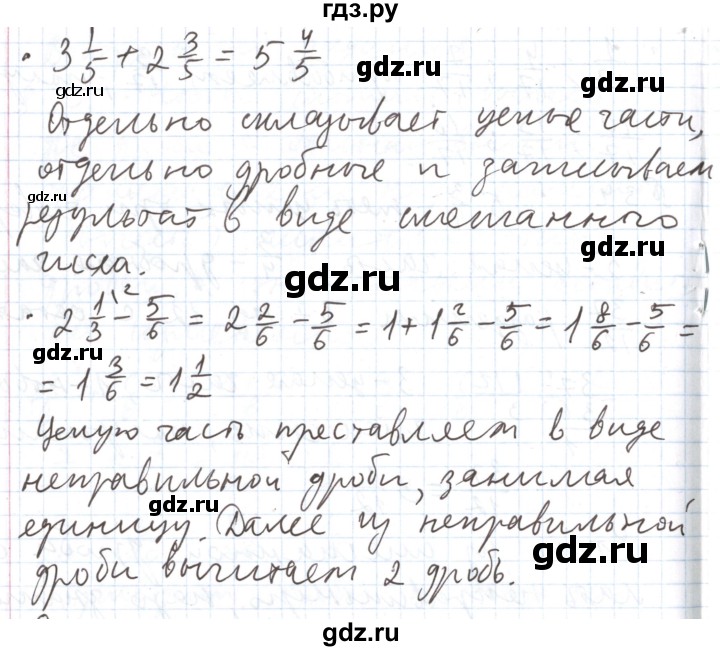 гдз.ру
• 3 1/5 + 2 3/5 = 5 4/5
gdz.ru
gdz.ru
Отдельно складывает целые части,
отдельно дробные и записываем
gdz.ru
результат в виде смешанного
числа.
gdz.ru
gdz.ru
• 2 1/3 \2 - 5/6 = 2 2/6 - 5/6 = 1 + 1 2/6 - 5/6 = 1 8/6 - 5/6 =
gdz.ru
= 1 3/6 = 1 1/2
gdz.ru
Целую часть преставляем в виде
неправильной дроби, занимая
gdz.ru
единицу. Далее из неправильной
gdz.ru
дроби вычитаем 2 дробь.
gdz.ru
gdz.ru